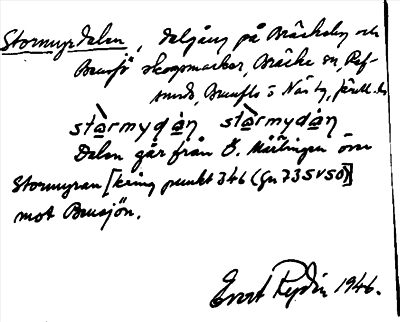 Stormyrdalen, dalgång på Bräcke och
Bensjö skogsmarker, Bräcke sn Ref-
sunds, Brunflo o Näs tg, Jämtl. l.
stòrmydàn stòrmydàn
Dalen går från Ö. Mårtingen över
Stormyran [kring punkt 346 (Gn 735V50)]
mot Bensjön.
Evert Rydin 1946.